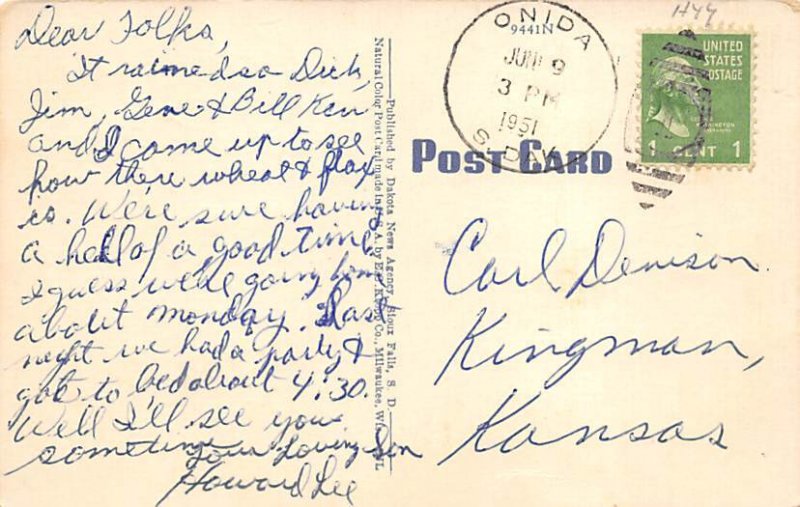 Dear Folks,
It rained so Dick,
Jim, Gene & Bill Ken
and I come up to see
how there wheat & flax
is. We're sure having
a hell of a good time.
I guess we're going home
about Monday. Last
night we had a party &
got to bed about 4:30.
Well I'll see you
sometime
Your Loving Son
Howard Lee
Published by Dakota News Agency, Sioux Falls, S. D.
Natural Color Post Card made in U.S.A. by E. C. Kropp Co., Milwaukee, Wis.
ONIDA
9441N
JUN 9
3 PM
1951
S. DAK.
H44
UNITED
STATES
POSTAGE
WASHINGTON
1 CENT 1
POST CARD
Carl Denison
Kingman,
Kansas